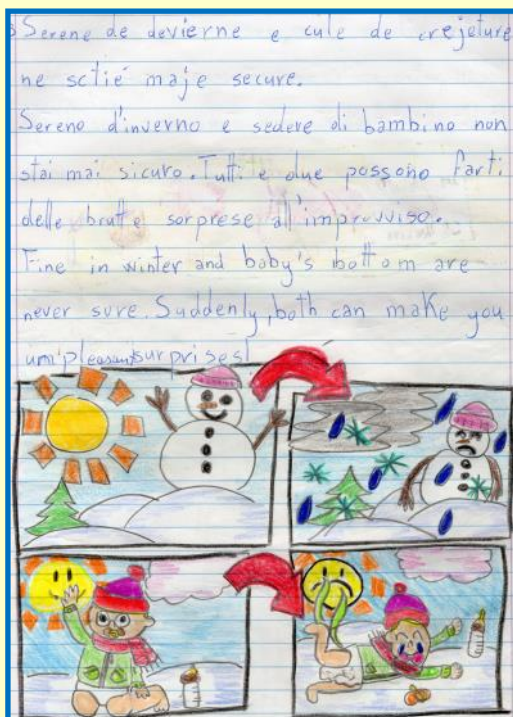 Serene de devierne e cule de crejature
ne sctié maje secure.
Sereno d'inverno e sedere di bambino non
stai mai sicuro. Tutti e due possono farti
delle brutte sorprese all'improvviso...
Fine in winter and baby's bottom are
never sure. Suddenly, both can make you
umpleasant surprises!